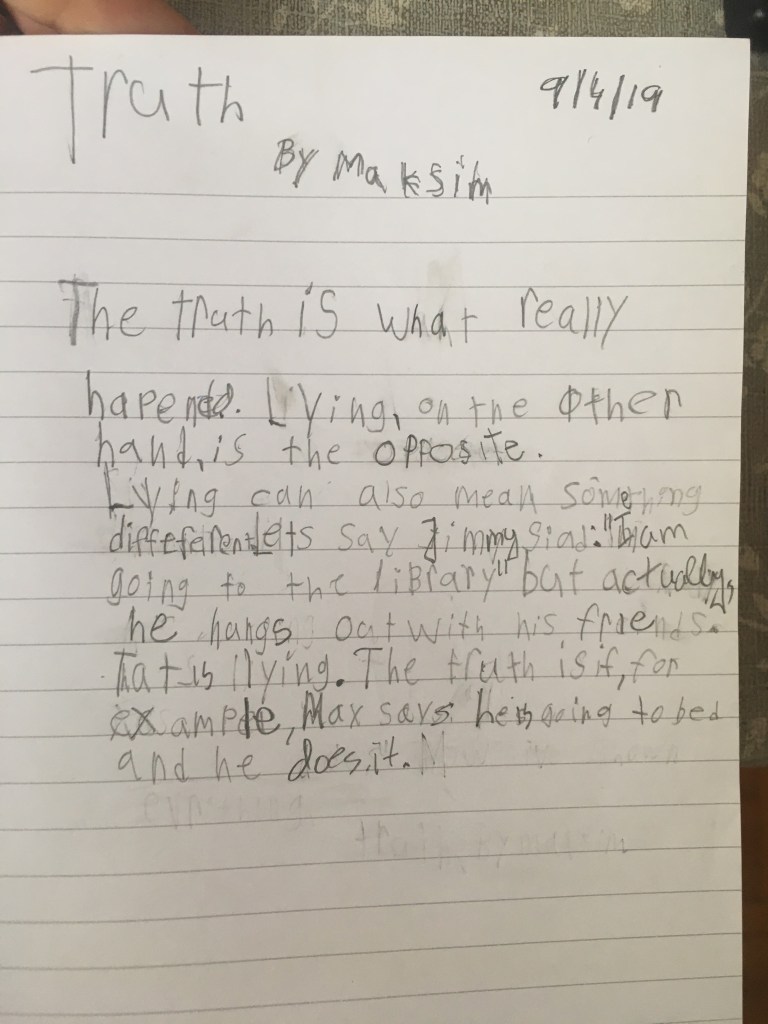 Truth
9/4/19
By Maksim
The truth is what really
hapend. Lying, on the other
hand, is the opposite.
Lying can also mean something
different Lets say Jimmy siad: "I am
going to the library" but actually,
he hangs out with his friends.
That is llying. The truth is if, for
example, Max says he is going to bed
and he does it.